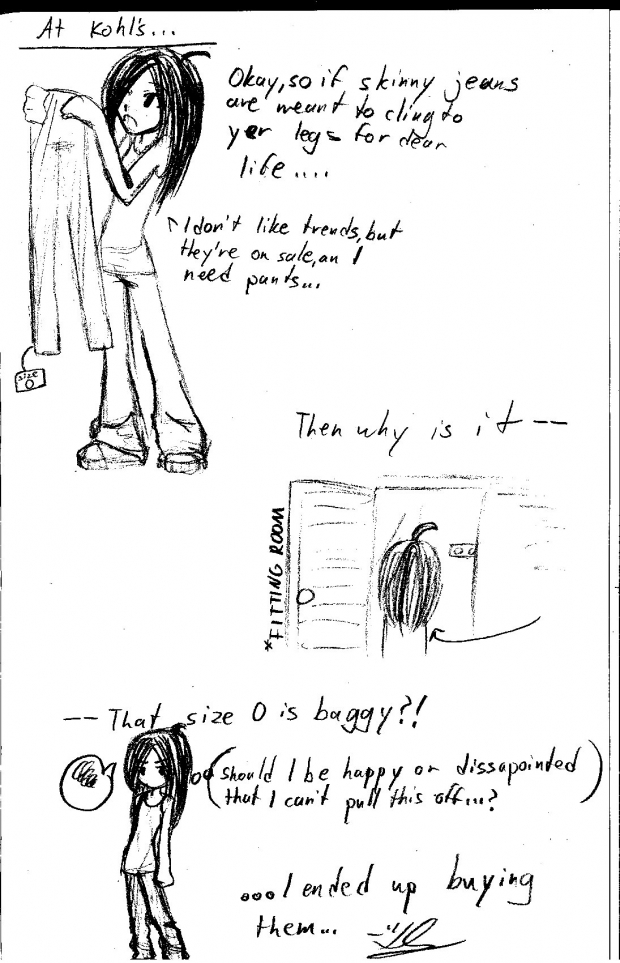 At Kohl's...
Okay, so if skinny jeans
are meant to cling to
yer legs for dear
life....
I don't like trends, but
they're on sale, an I
need pants...
size
0
Then why is it --
*FITTING ROOM
-- That size 0 is baggy?!
(should I be happy or dissapointed
that I can't pull this off...?)
...I ended up buying
them...